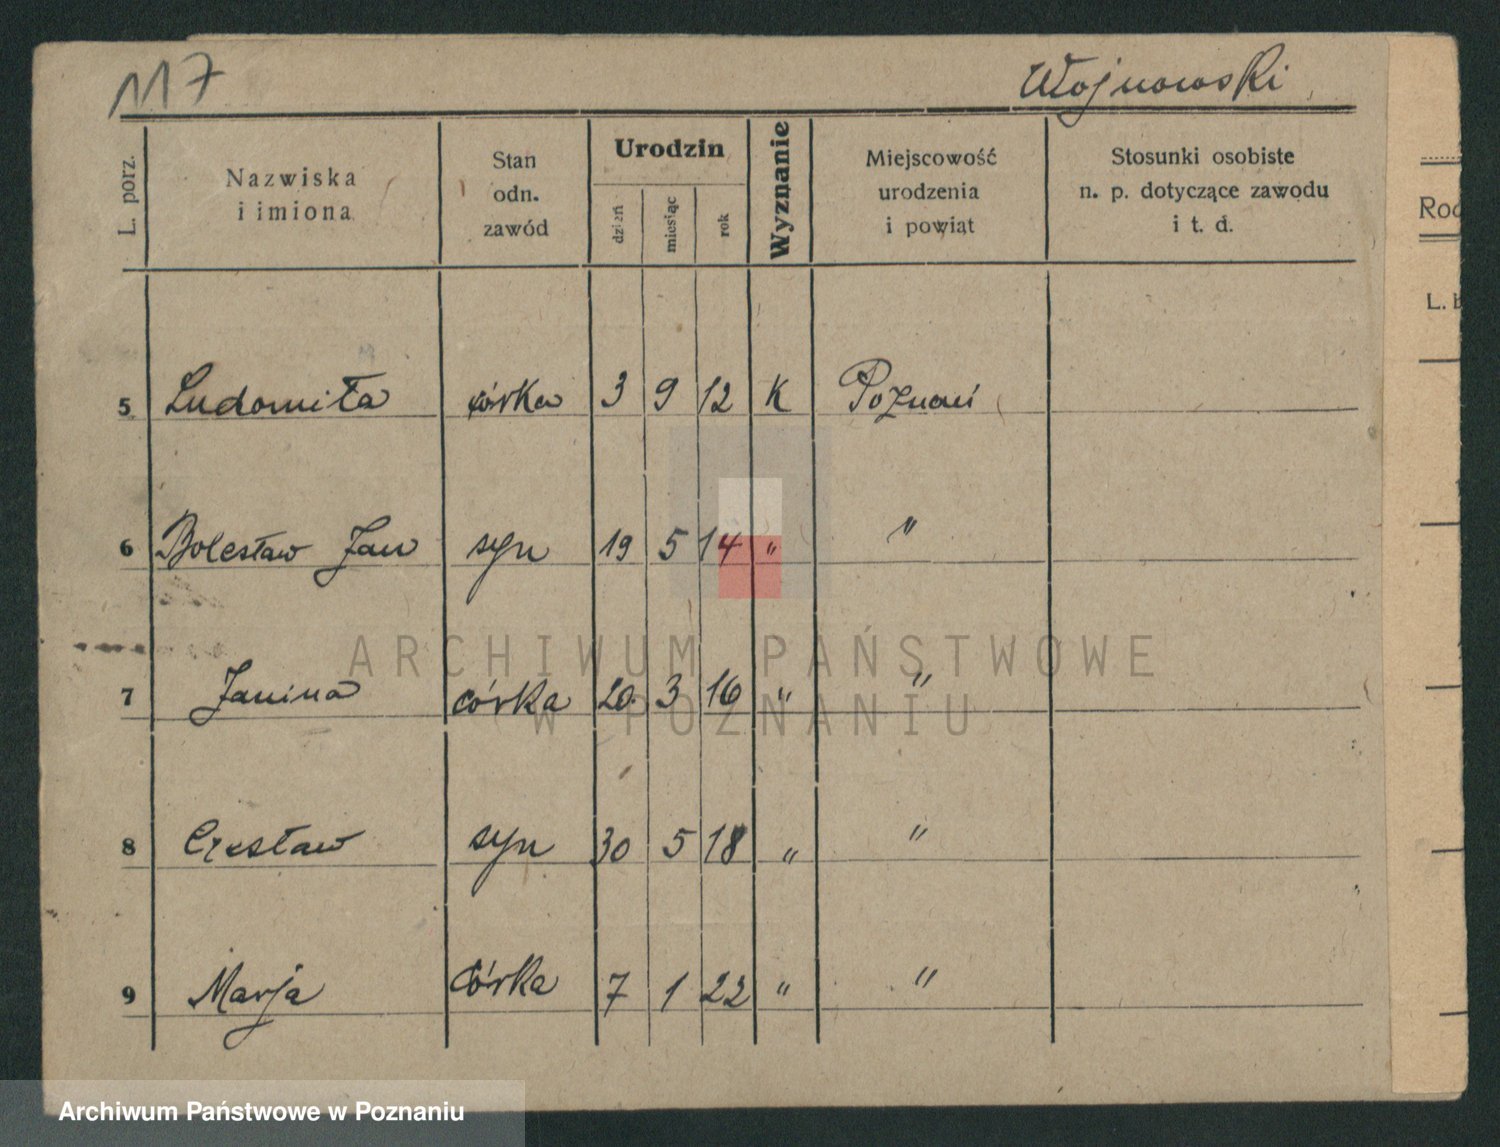 117
Wojnowski
L. porz.
Nazwiska
i imiona
Stan
odn.
zawód
Urodzin
dzień
miesiąc
rok
Wyznanie
Miejscowość
urodzenia
i powiat
Stosunki osobiste
n. p. dotyczące zawodu
i t. d.
5 Ludomiła córka 3 9 12 K Poznań
6 Bolesław Jan syn 19 5 14 " "
7 Janina córka 20 3 16 " "
8 Czesław syn 30 5 18 " "
9 Marja córka 7 1 22 " "
L.
ARCHIWUM PAŃSTWOWE
W POZNANIU
Archiwum Państwowe w Poznaniu